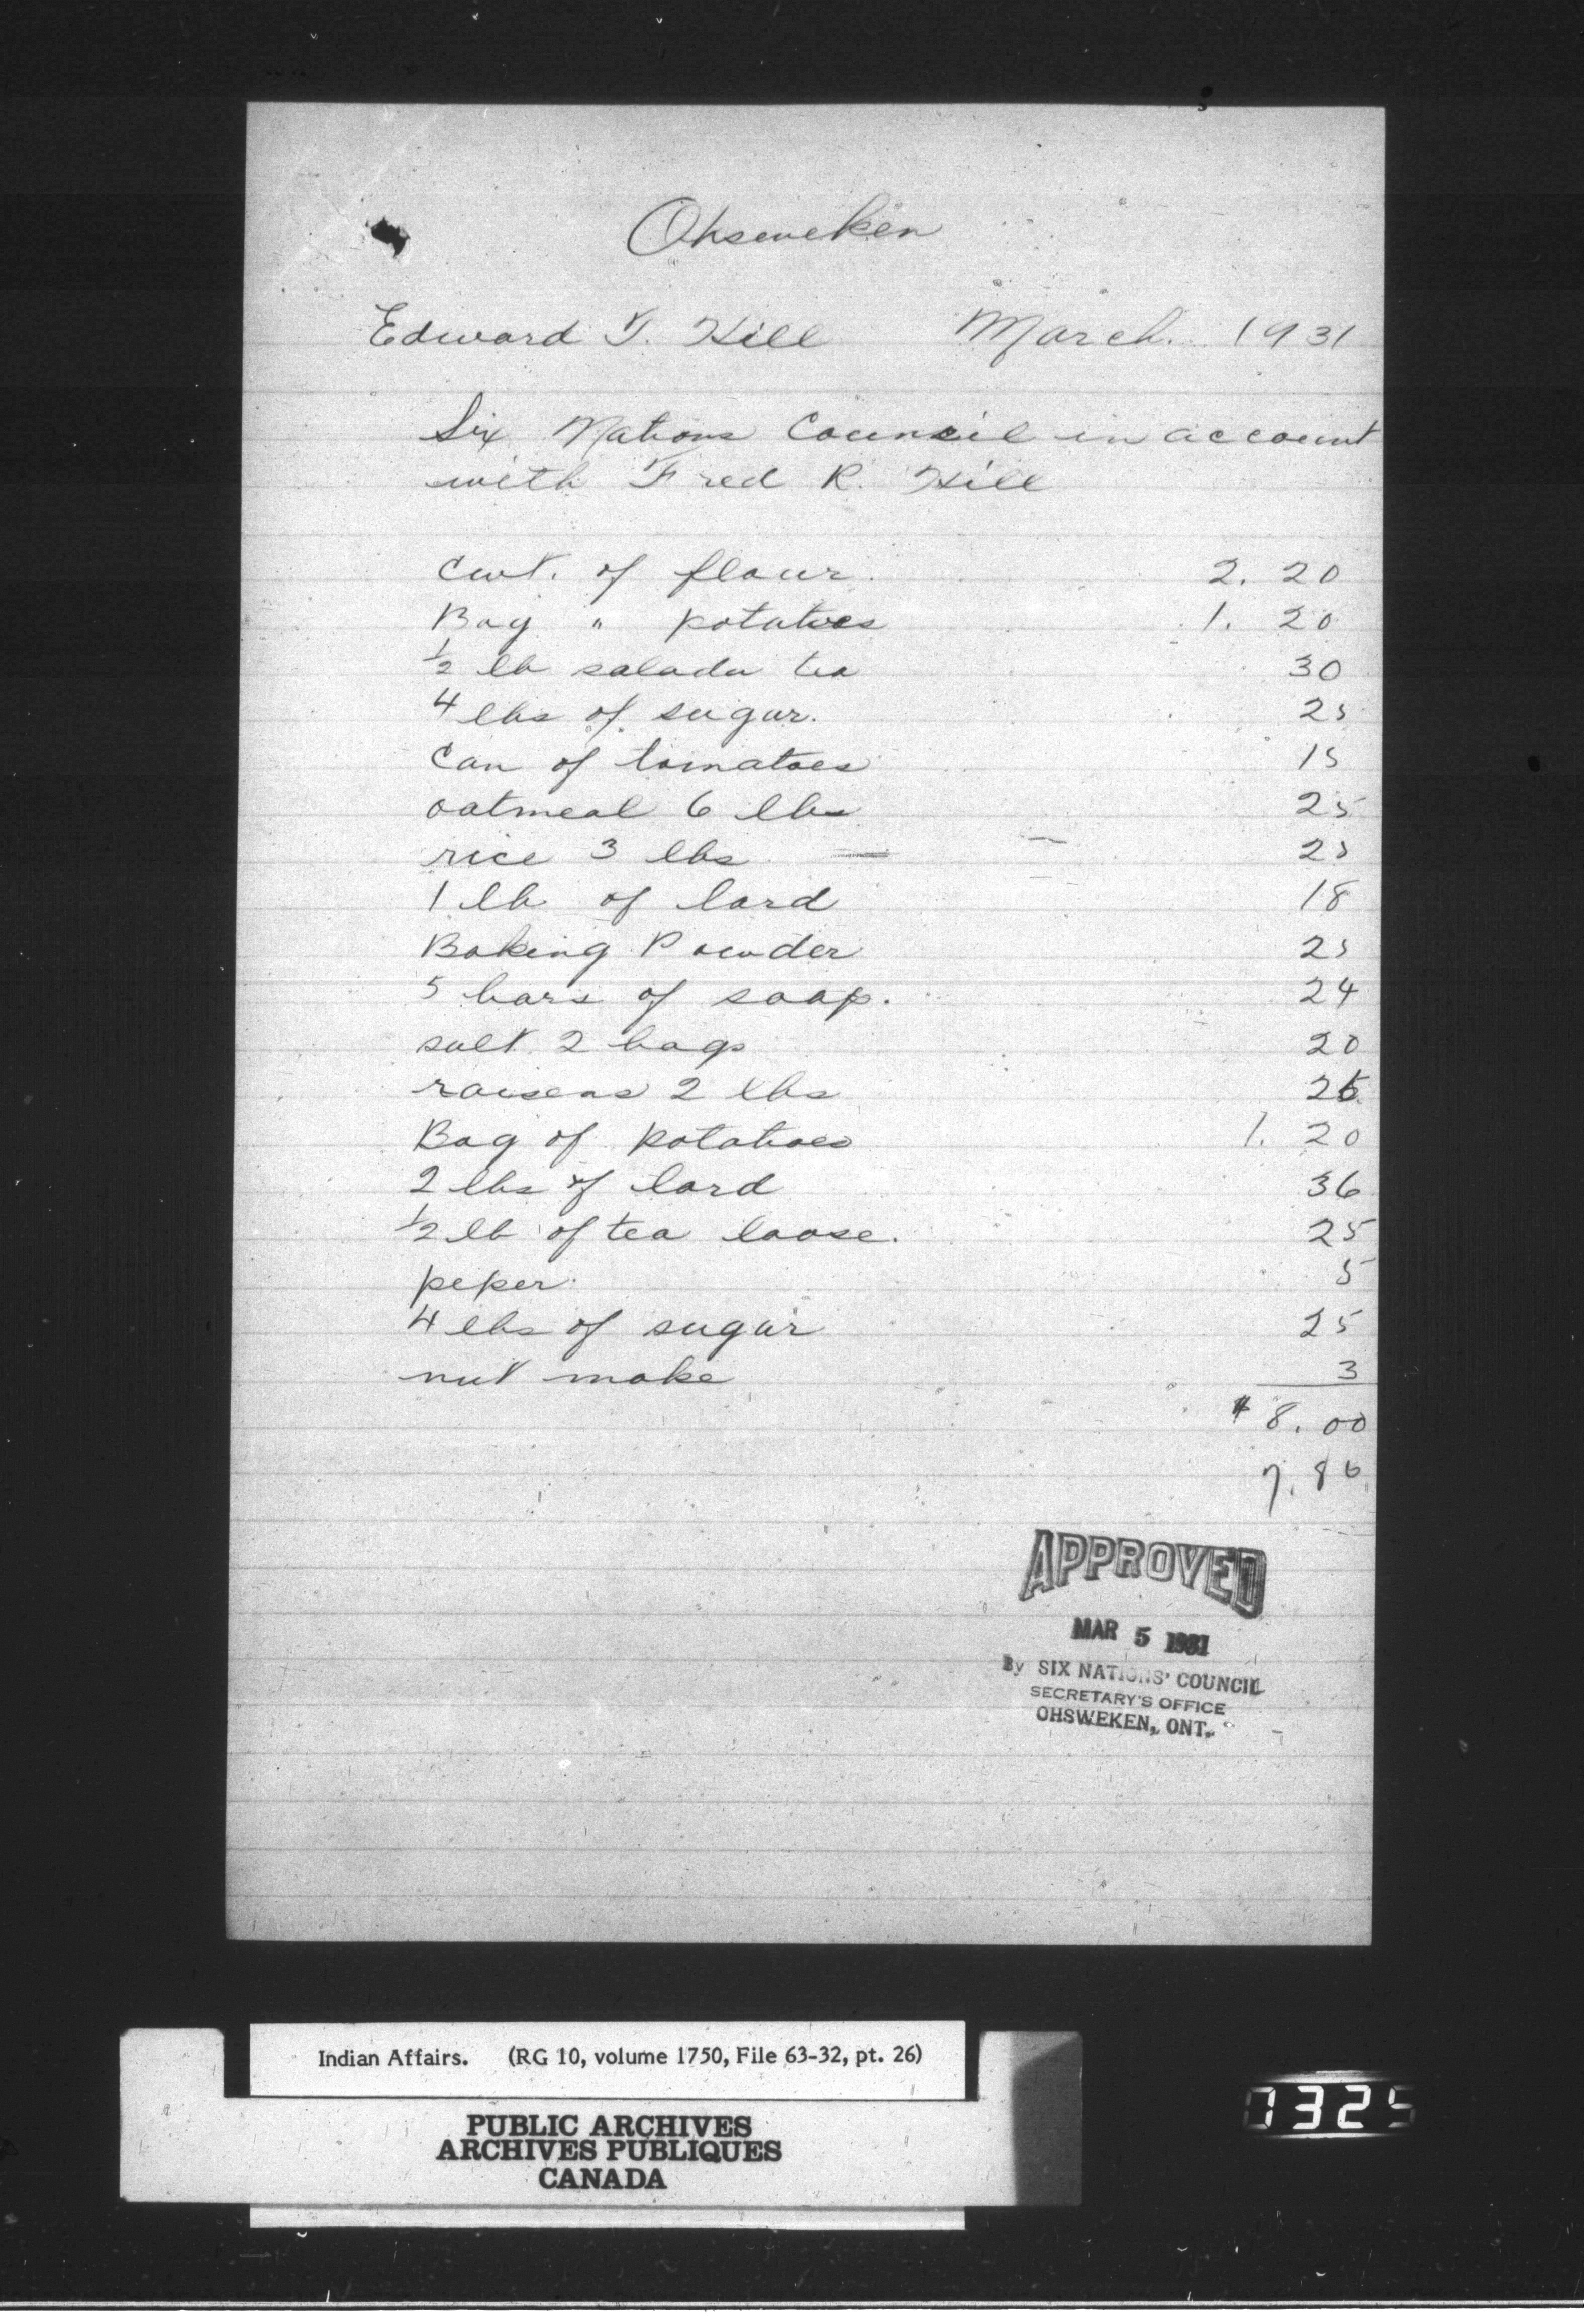 Ohseweken
Edward T. Hill March. 1931
Six Nations Council in account
with Fred R. Hill
Cwt. of flour. 2. 20
Bag " potatoes 1. 20
½ lb salada tea 30
4 lbs of sugar. 25
Can of tomatoes 15
oatmeal 6 lbs 25
rice 3 lbs 25
1 lb of lard 18
Baking Powder 25
5 bars of soap. 24
salt 2 bags 20
raisens 2 lbs 25
Bag of potatoes 1. 20
2 lbs of lard 36
½ lb of tea loose. 25
peper 5
4 lbs of sugar 25
nut make 3
$ 8.00
7.86
APPROVED
MAR 5 1931
By SIX NATIONS' COUNCIL
SECRETARY'S OFFICE
OHSWEKEN, ONT.
Indian Affairs. (RG 10, volume 1750, File 63-32, pt. 26)
PUBLIC ARCHIVES
ARCHIVES PUBLIQUES
CANADA
1325